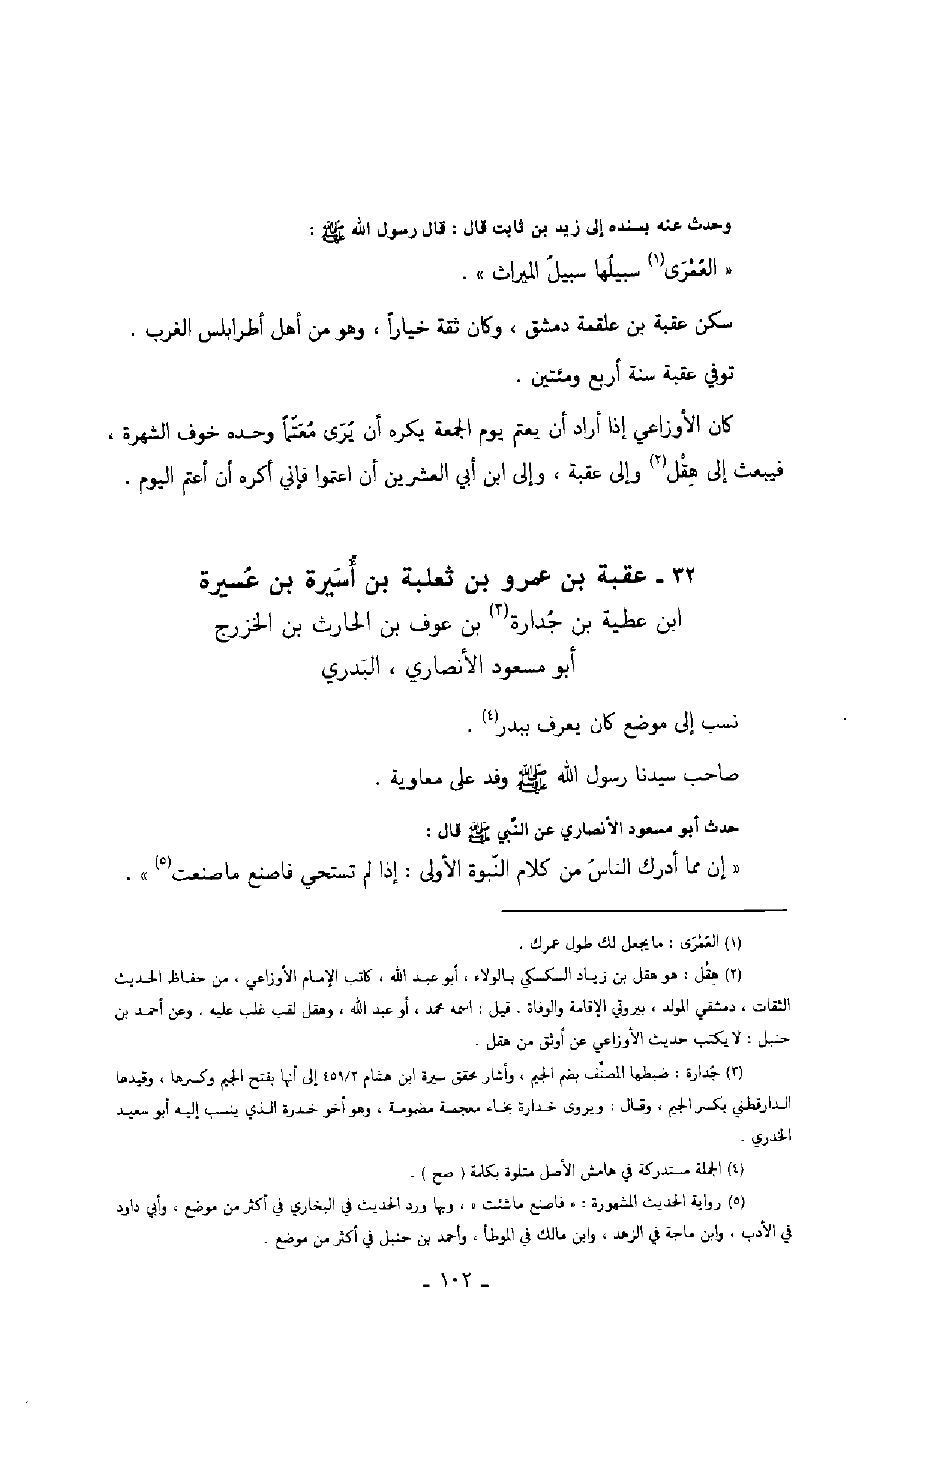 وحدث عنه بسنده إلى زيد بن ثابت قال : قال رسول الله ﷺ :
« العُمْرَى(١) سبيلُها سبيلُ الميراث » .
سكن عقبة بن علقمة دمشق ، وكان ثقة خياراً ، وهو من أهل أطرابلس الغرب .
توفي عقبة سنة أربع ومئتين .
كان الأوزاعي إذا أراد أن يعتم يوم الجمعة يكره أن يُرَى مُعْتَمّاً وحده خوف الشهرة ،
فيبعث إلى هِقْل(٢) وإلى عقبة ، وإلى ابن أبي العشرين أن اعتموا فإني أكره أن أعتم اليوم .
٣٢ ـ عقبة بن عمرو بن ثعلبة بن أُسَيرة بن عَسيرة
ابن عطية بن جُدارة(٣) بن عوف بن الحارث بن الخزرج
أبو مسعود الأنصاري ، البَدري
نسب إلى موضع كان يعرف ببدر(٤) .
صاحب سيدنا رسول الله ﷺ وفد على معاوية .
حدث أبو مسعود الأنصاري عن النَّبي ﷺ قال :
« إن مما أدرك الناسُ من كلام النّبوة الأولى : إذا لم تستحي فاصنع ماصنعت(٥) » .
(١) العُمْرَى : مايجعل لك طول عمرك .
(٢) هِقْل : هو هقل بن زياد السكسكي بالولاء ، أبو عبد الله ، كاتب الإمام الأوزاعي ، من حفاظ الحديث
الثقات ، دمشقي المولد ، بيروتي الإقامة والوفاة . قيل : اسمه محمد ، أو عبد الله ، وهقل لقب غلب عليه . وعن أحمد بن
حنبل : لا يكتب حديث الأوزاعي عن أوثق من هقل .
(٣) جُدارة : ضبطها المصنّف بضم الجيم ، وأشار محقق سيرة ابن هشام ٤٥٩/٢ إلى أنها بفتح الجيم وكسرها ، وقيدها
الدارقطني بكسر الجيم ، وقال : ويروى خدارة بخاء معجمة مضمومة ، وهو أخو خدرة الذي ينسب إليه أبو سعيد
الخدري .
(٤) الجملة مستدركة في هامش الأصل متلوة بكلمة ( صح ) .
(٥) رواية الحديث المشهورة : « فاصنع ماشئت » ، وبها ورد الحديث في البخاري في أكثر من موضع ، وأبي داود
في الأدب ، وابن ماجة في الزهد ، وابن مالك في الموطأ ، وأحمد بن حنبل في أكثر من موضع .
ـ ١٠٢ ـ